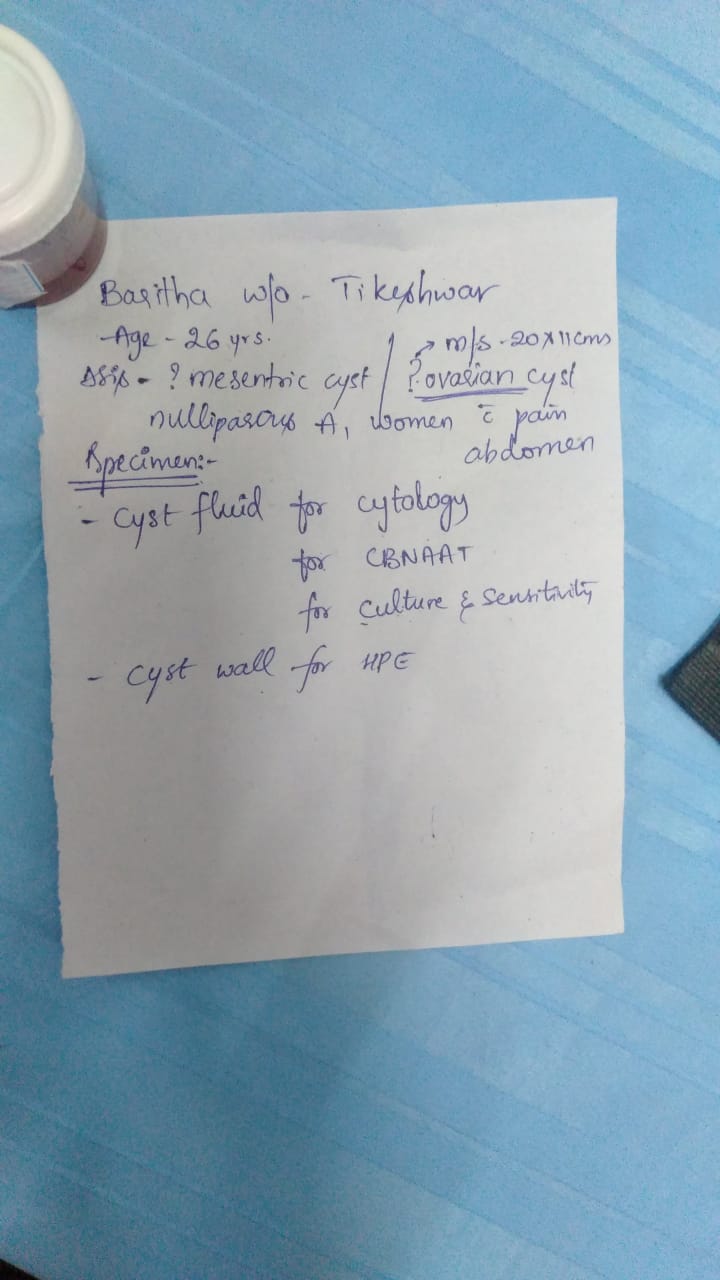 Basitha w/o - Tikeshwar
Age - 26 yrs.
→ m/s - 20 x 11 cms
ΔSis - ? mesentric cyst / ? ovarian cyst
nulliparous A1 women c̄ pain
abdomen
Specimen:-
- Cyst fluid for cytology
for CBNAAT
for Culture & Sensitivity
- Cyst wall for HPE